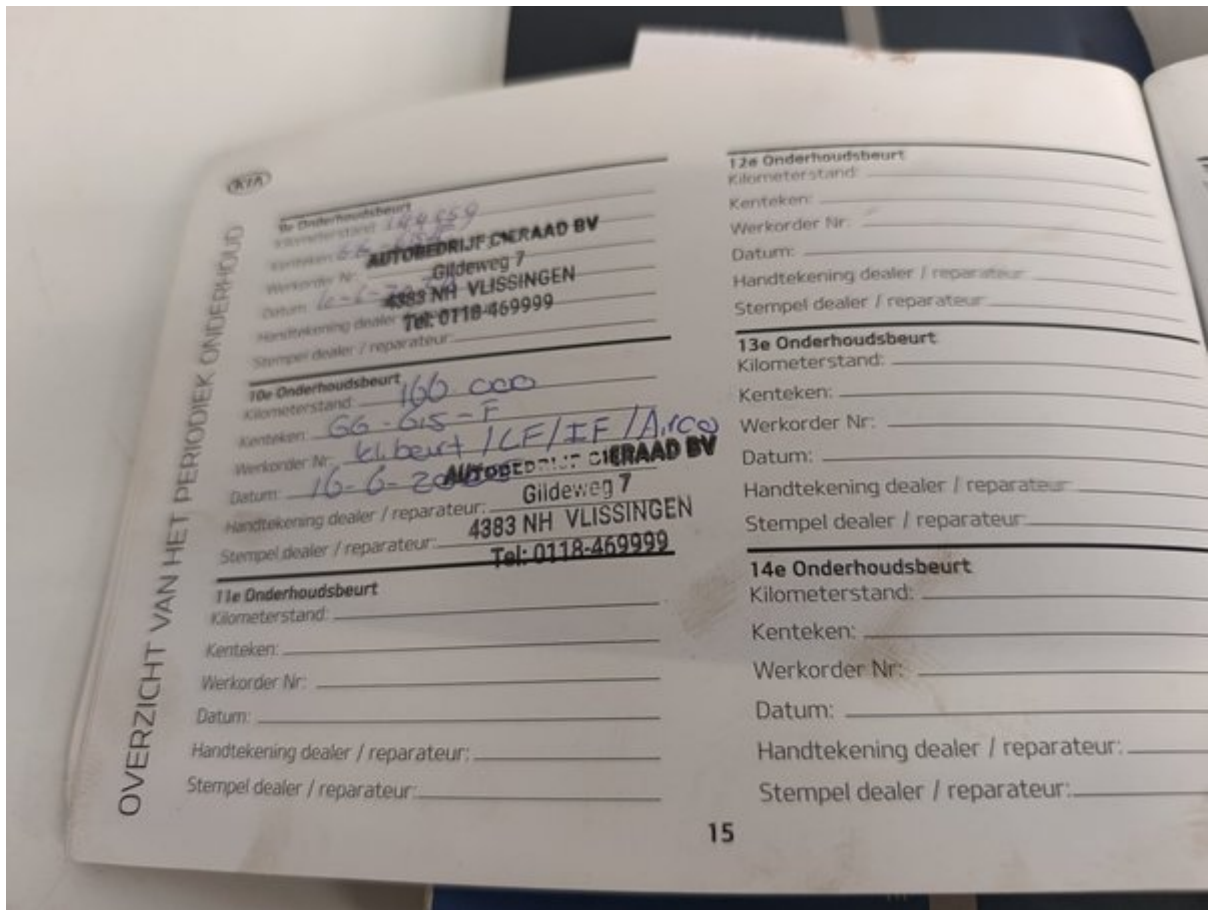 KIA
OVERZICHT VAN HET PERIODIEK ONDERHOUD
9e Onderhoudsbeurt
Kilometerstand:
Kenteken:
Werkorder Nr:
Datum:
Handtekening dealer
Stempel dealer / reparateur:
AUTOBEDRIJF CIERAAD BV
Gildeweg 7
4383 NH VLISSINGEN
Tel: 0118-469999
10e Onderhoudsbeurt
Kilometerstand: 166.000
Kenteken: GG-615-F
Werkorder Nr: kl. beurt / LF / IF / Airco
Datum: 16-6-20
Handtekening dealer / reparateur:
Stempel dealer / reparateur:
AUTOBEDRIJF CIERAAD BV
Gildeweg 7
4383 NH VLISSINGEN
Tel: 0118-469999
11e Onderhoudsbeurt
Kilometerstand:
Kenteken:
Werkorder Nr:
Datum:
Handtekening dealer / reparateur:
Stempel dealer / reparateur:
12e Onderhoudsbeurt
Kilometerstand:
Kenteken:
Werkorder Nr:
Datum:
Handtekening dealer / reparateur:
Stempel dealer / reparateur:
13e Onderhoudsbeurt
Kilometerstand:
Kenteken:
Werkorder Nr:
Datum:
Handtekening dealer / reparateur:
Stempel dealer / reparateur:
14e Onderhoudsbeurt
Kilometerstand:
Kenteken:
Werkorder Nr:
Datum:
Handtekening dealer / reparateur:
Stempel dealer / reparateur:
15